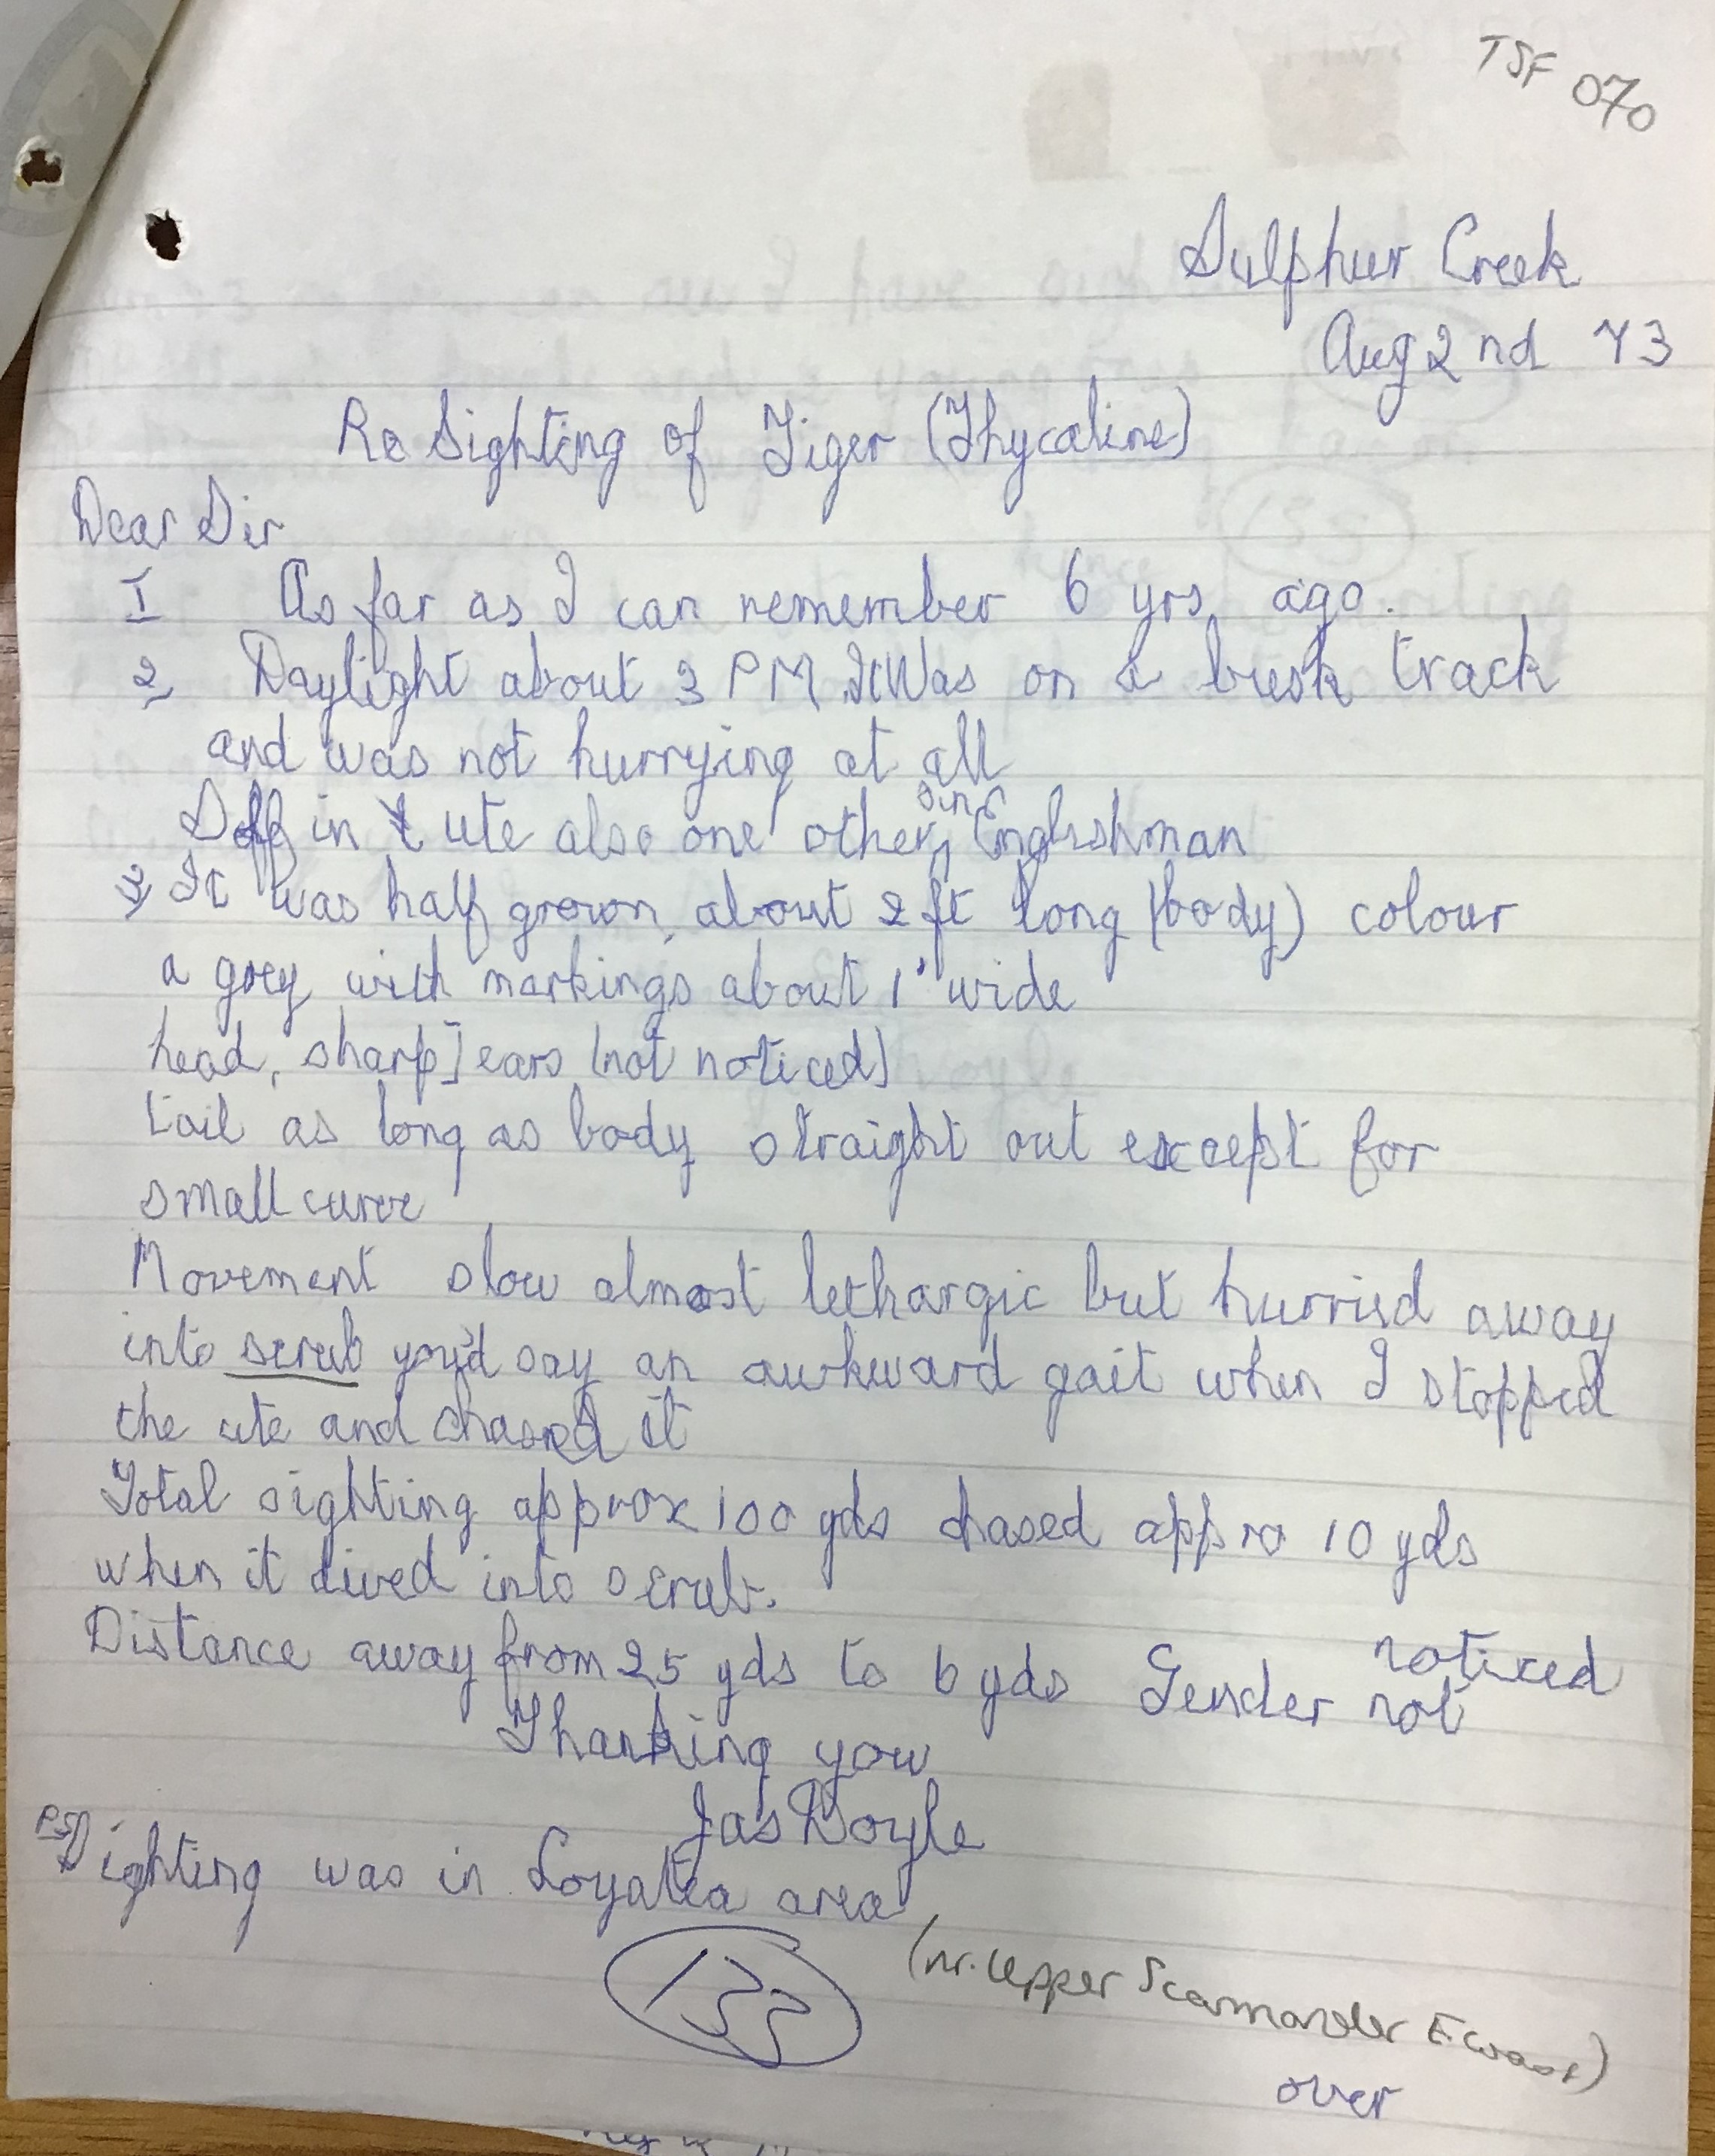 TSF 070
Sulphur Creek
Aug 2nd 73
Re Sighting of Tiger (Thycaline)
Dear Sir
I As far as I can remember 6 yrs ago.
2 Daylight about 3 PM. It Was on a bush track
and was not hurrying at all
in ute also one other, Englishman
3 It was half grown, about 2 ft long (body) colour
a grey with markings about 1" wide
head, sharp] ears (not noticed)
tail as long as body straight out except for
small curve
Movement slow almost lethargic but hurried away
into scrub you'd say an awkward gait when I stopped
the ute and chased it
Total sighting approx 100 yds chased appro 10 yds
when it dived into scrub.
Distance away from 25 yds to 6 yds Gender not noticed
Thanking you
Jas Doyle
PS Sighting was in Loyatea area
(nr. Upper Scamander E. Coast)
133
over